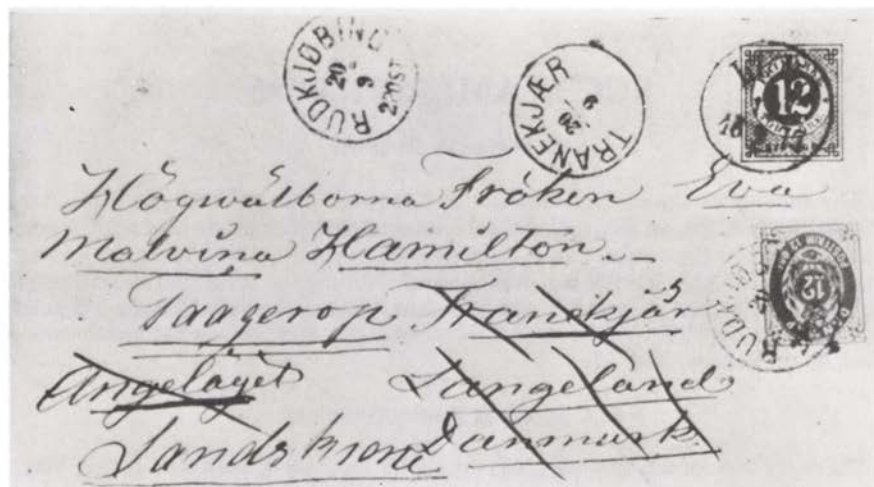 RUDKJØBING
20
9
2 POST
TRANEKJÆR
20
9
12
Högwälborna Fröken Eva
Malvina Hamilton
12
Taagerop Tranekjär
Angeläget Langeland
Landskrona Danmark